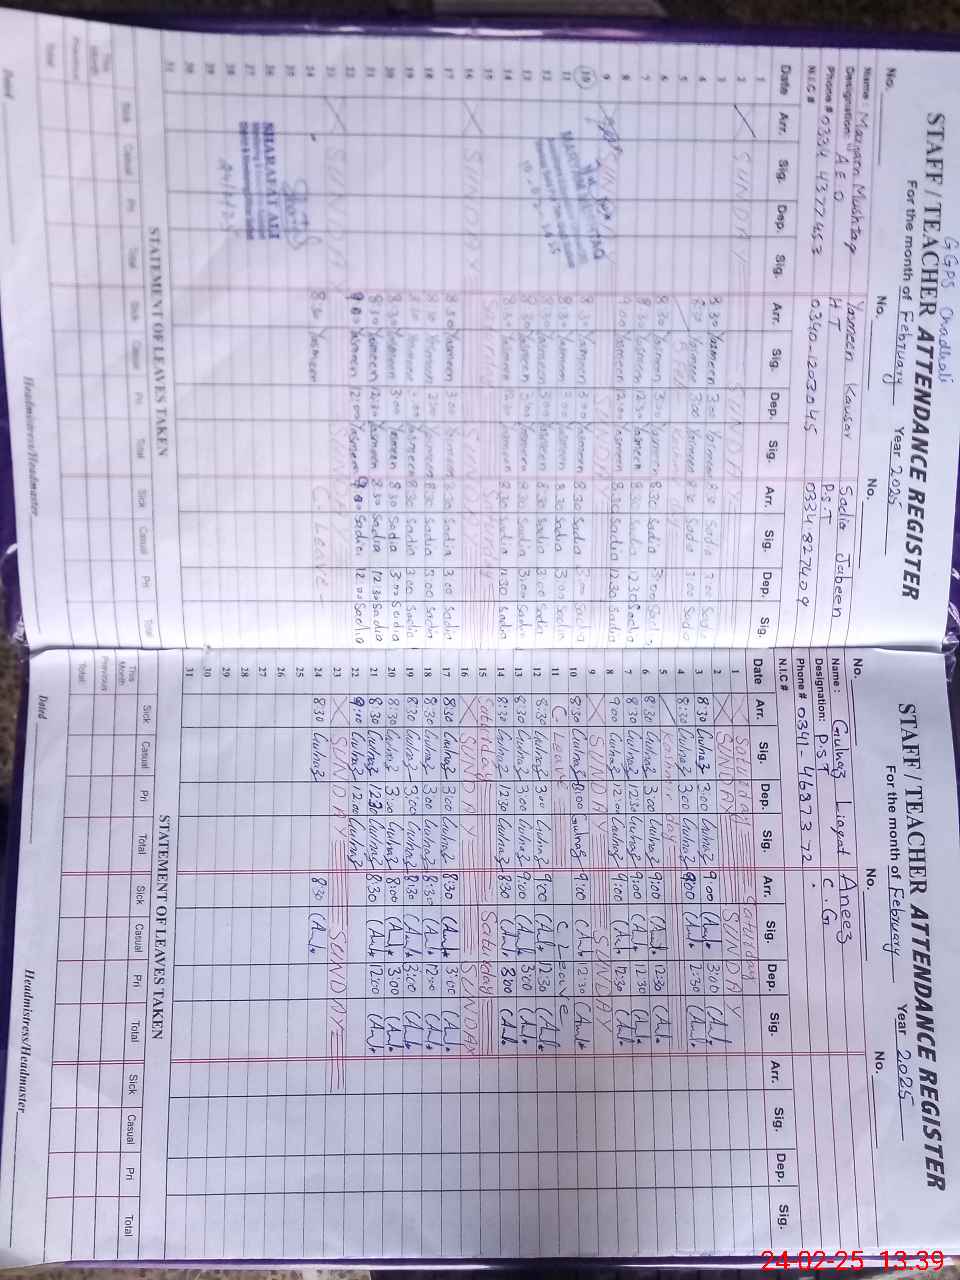 GGPS Chadhali
STAFF / TEACHER ATTENDANCE REGISTER
For the month of February Year 2025
No. No. No.
Name: Maryam Mushtaq Yasmeen Kausar Sadia Jabeen
Designation: A E O H T P.S.T
Phone # 0334 4377453 0340-1203045 0334 827409
N.I.C #
Date Arr. Sig. Dep. Sig. Arr. Sig. Dep. Sig. Arr. Sig. Dep. Sig.
1
2 SUNDAY SUNDAY
3 8:30 Yasmeen 3:00 Yasmeen 8:30 Sadia 3:00 Sadia
4 8:30 Yasmeen 3:00 Yasmeen 8:30 Sadia 3:00 Sadia
5 Kashmir day
6 8:30 Yasmeen 3:00 Yasmeen 8:30 Sadia 3:00 Sadia
7 8:30 Yasmeen 12:30 Yasmeen 8:30 Sadia 12:30 Sadia
8 9:00 Yasmeen 12:00 Yasmeen 8:30 Sadia 12:30 Sadia
9 SUNDAY SUNDAY
10 8:30 Yasmeen 3:00 Yasmeen 8:30 Sadia 3:00 Sadia
11 8:30 Yasmeen 3:00 Yasmeen 8:30 Sadia 3:00 Sadia
12 8:30 Yasmeen 3:00 Yasmeen 8:30 Sadia 3:00 Sadia
13 8:30 Yasmeen 3:00 Yasmeen 8:30 Sadia 3:00 Sadia
14 8:30 Yasmeen Yasmeen 8:30 Sadia 12:30 Sadia
15 Saturday
16 SUNDAY SUNDAY
17 8:30 Yasmeen 3:00 Yasmeen 8:30 Sadia 3:00 Sadia
18 8:30 Yasmeen Yasmeen 8:30 Sadia 3:00 Sadia
19 8:30 Yasmeen 3:00 Yasmeen 8:30 Sadia 3:00 Sadia
20 8:30 Yasmeen 3:00 Yasmeen 8:30 Sadia 3:00 Sadia
21 8:30 Yasmeen 12:30 Yasmeen 8:30 Sadia 12:30 Sadia
22 9:00 Yasmeen 12:00 Yasmeen 9:00 Sadia 12:00 Sadia
23 SUNDAY SUNDAY
24 8:30 Yasmeen C Leave
25
26
27
28
29
30
31
SHARAFAT ALI
STATEMENT OF LEAVES TAKEN
Sick Casual Pri Total Sick Casual Pri Total Sick Casual Pri Total
This Month
Previous
Total
Dated Headmistress/Headmaster
STAFF / TEACHER ATTENDANCE REGISTER
For the month of February Year 2025
No. No. No.
Name: Gulnaz Liaqat Aneez
Designation: P.S.T C.G
Phone # 0341-4687372
N.I.C #
Date Arr. Sig. Dep. Sig. Arr. Sig. Dep. Sig. Arr. Sig. Dep. Sig.
1 Saturday Saturday
2 SUNDAY SUNDAY
3 8:30 Gulnaz 3:00 Gulnaz 9:00 3:00
4 8:30 Gulnaz 3:00 Gulnaz 9:00 2:30
5 Kashmir day
6 8:30 Gulnaz 3:00 Gulnaz 9:00 12:30
7 8:30 Gulnaz 12:30 Gulnaz 9:00 12:30
8 9:00 Gulnaz 12:00 Gulnaz 9:00 12:30
9 SUNDAY SUNDAY
10 8:30 Gulnaz 3:00 Gulnaz 9:00 12:30
11 C Leave C Leave
12 8:30 Gulnaz 3:00 Gulnaz 9:00 12:30
13 8:30 Gulnaz 3:00 Gulnaz 9:00 3:00
14 8:30 Gulnaz 12:30 Gulnaz 8:30 3:00
15 Saturday Saturday
16 SUNDAY SUNDAY
17 8:30 Gulnaz 3:00 Gulnaz 8:30 3:00
18 8:30 Gulnaz 3:00 Gulnaz 8:30 12:00
19 8:30 Gulnaz 3:00 Gulnaz 8:30 3:00
20 8:30 Gulnaz 3:00 Gulnaz 8:00 3:00
21 8:30 Gulnaz 12:30 Gulnaz 8:30 12:00
22 9:10 Gulnaz 12:00 Gulnaz
23 SUNDAY SUNDAY
24 8:30 Gulnaz 8:30
25
26
27
28
29
30
31
STATEMENT OF LEAVES TAKEN
Sick Casual Pri Total Sick Casual Pri Total Sick Casual Pri Total
This Month
Previous
Total
Dated Headmistress/Headmaster
24-02-25 13:39